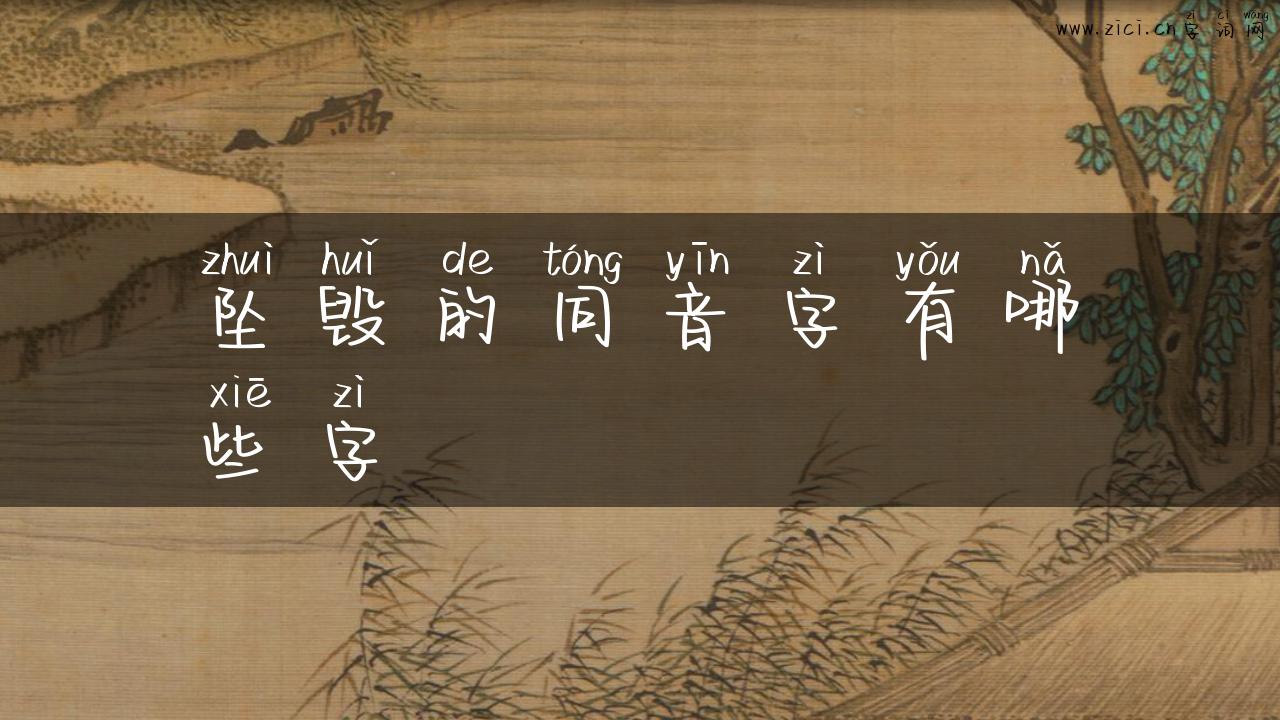 zì cí wǎng
www.zici.cn字词网
zhuì huǐ de tóng yīn zì yǒu nǎ
坠毁的同音字有哪
xiē zì
些字